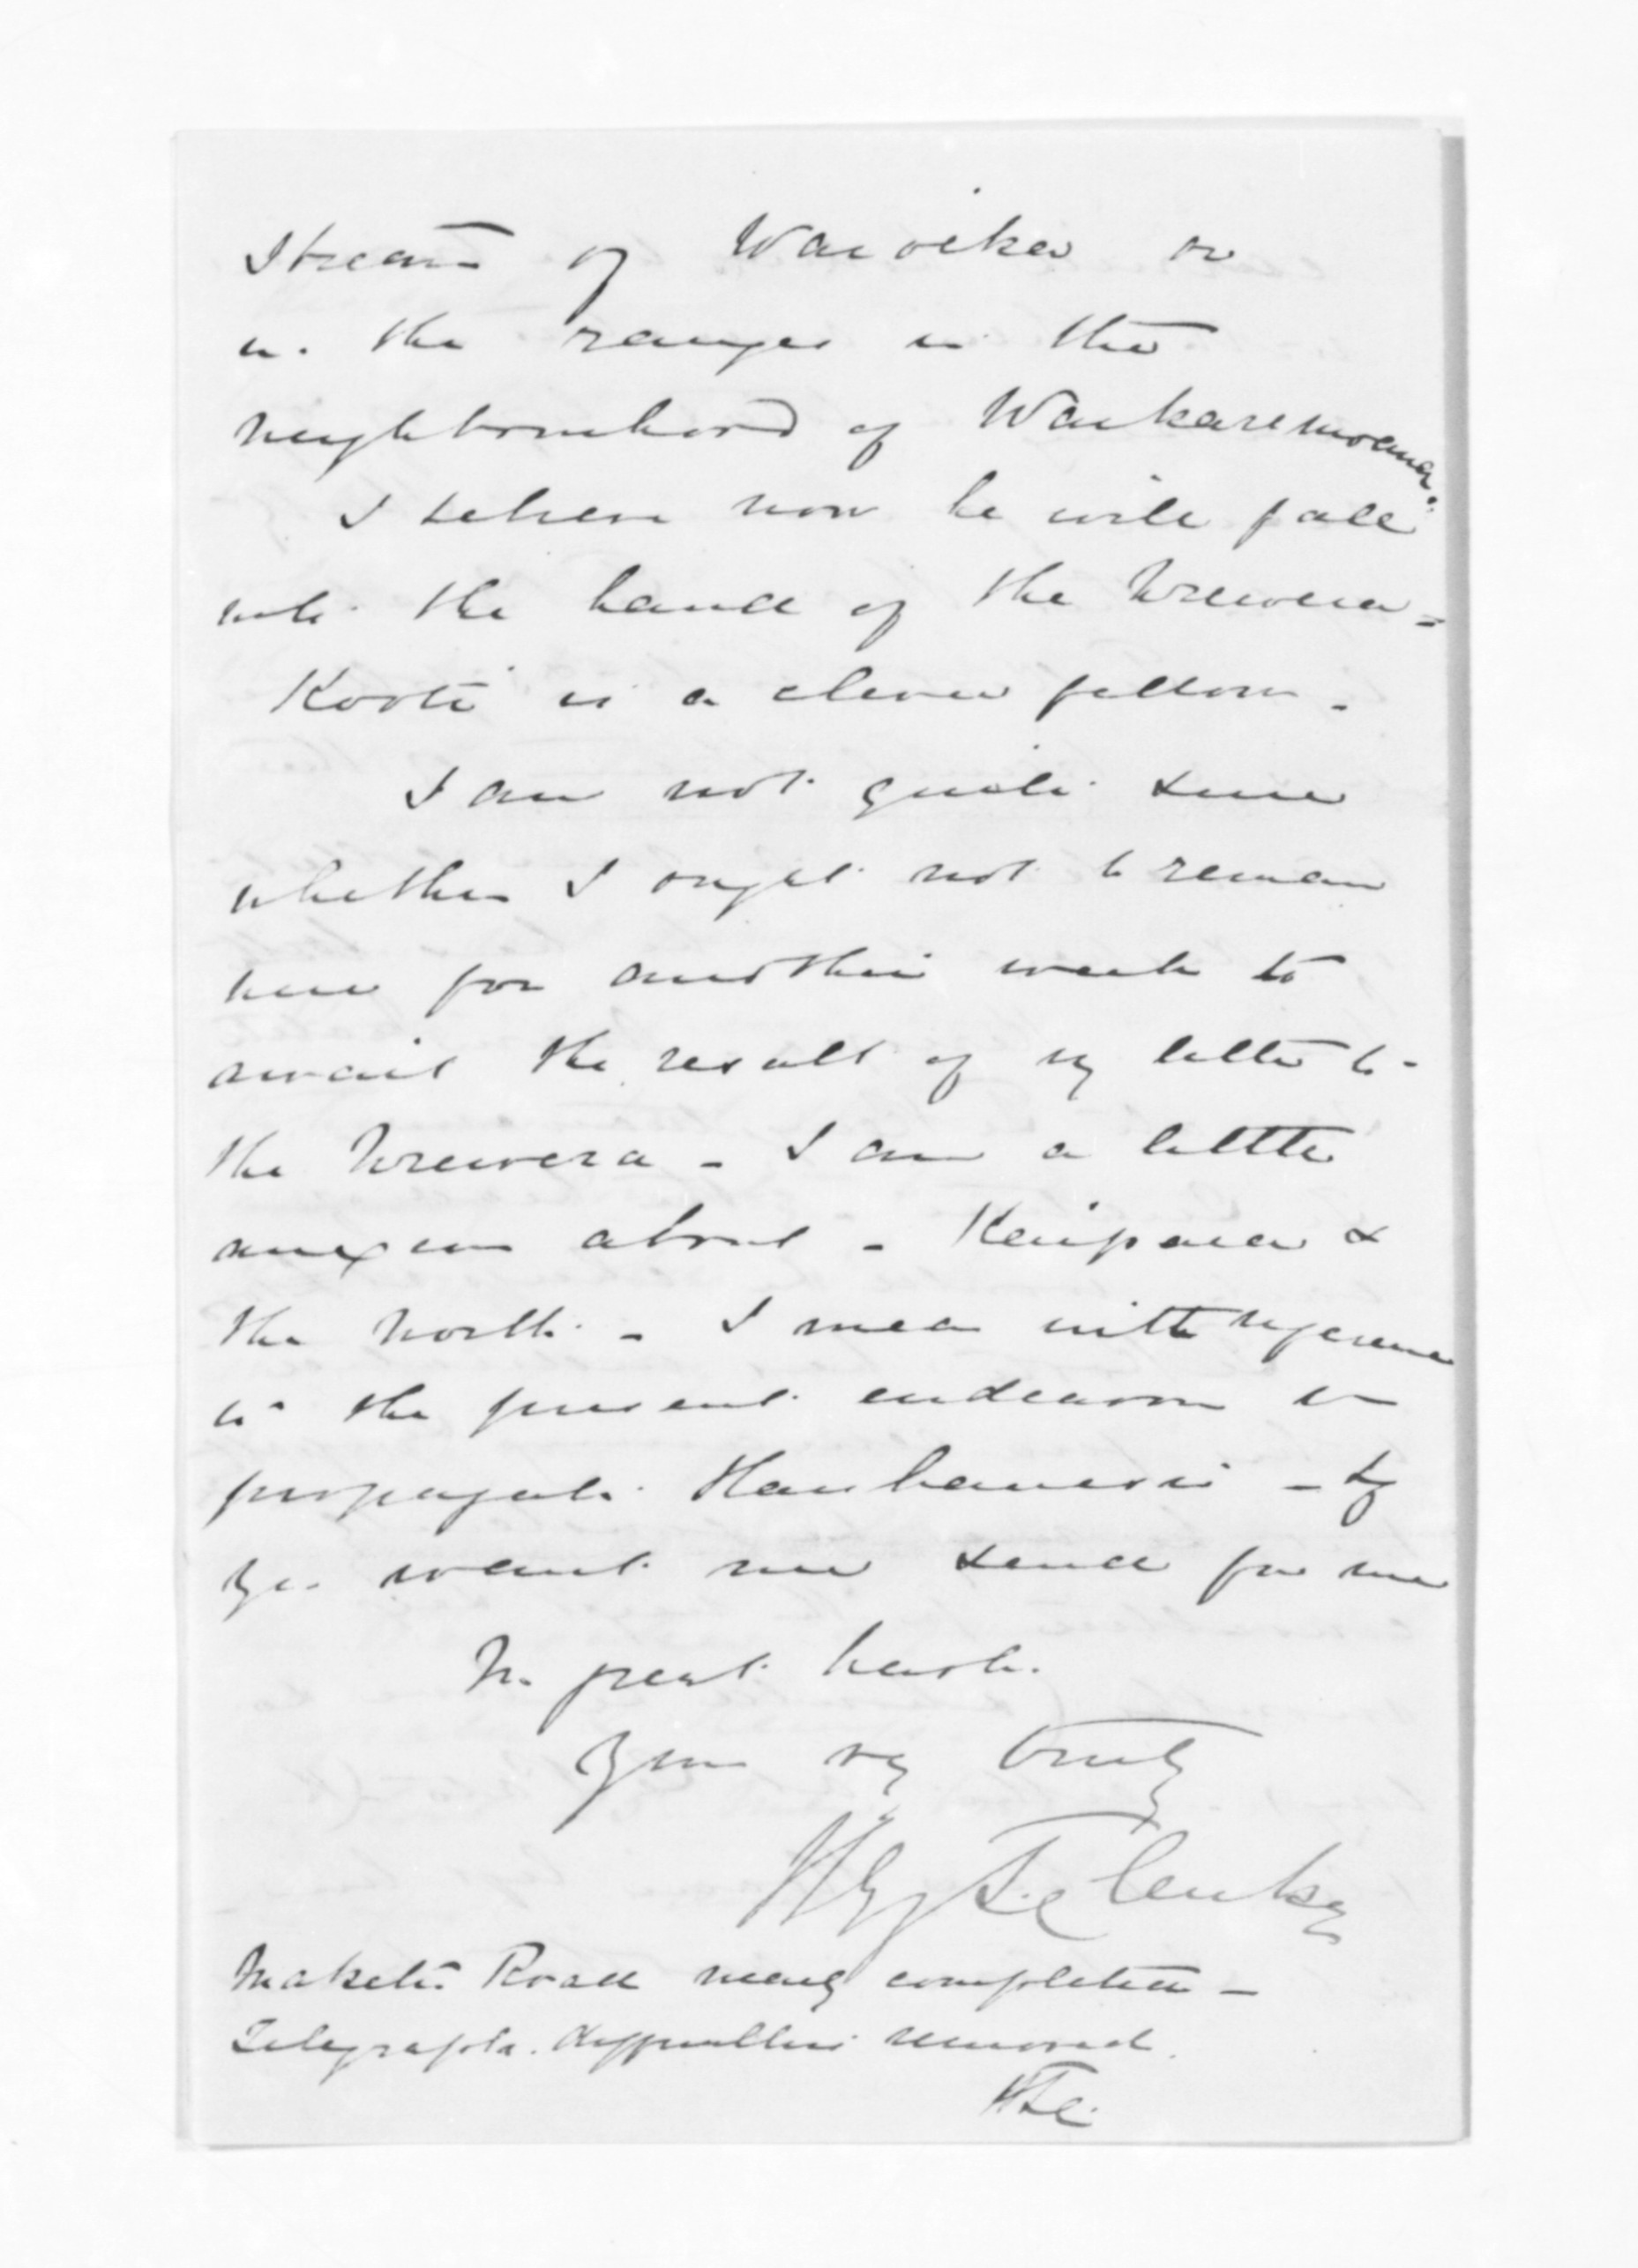 Stream of Waioeka or
in the ranges in the
neighbourhood of Waikaremoana.
I believe now he will fall
into the hands of the Urewera -
Kooti is a clever fellow -
I am not quite sure
whether I ought not to remain
here for another week to
await the result of my letter to
the Urewera - I am a little
anxious about - Kaipara &
the North - I mean with reference
to the present endeavour to
propagate Hauhauism - If
you want me send for me
In great haste
Yours very truly
H T Clarke
Maketu Road nearly completed -
Telegraph difficulties removed.
HTC